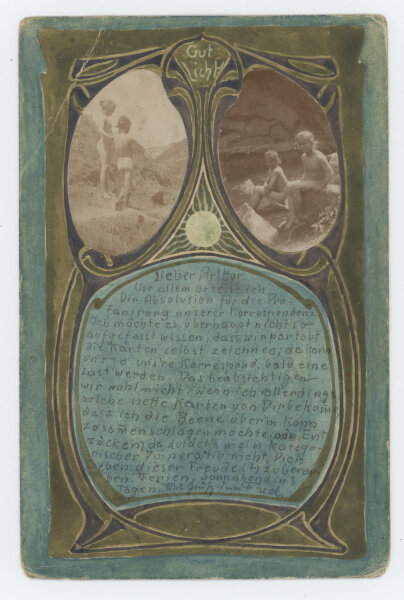 Gut
Licht
Lieber Arthur.
Vor allem erteile ich
Dir Absolution für die Pro-
fanirung unserer Korrespondenz.
Ich möchte es überhaupt nicht so
aufgefasst wissen, dass wir partout
die Karten selbst zeichnen, da kann
uns ja uns're Korrespond. bald eine
Last werden. Das beabsichtigen
wir wohl nicht. Wenn ich allerdings
solche nette Karten von Dir bekomme
dass ich die Beene über'm Kopp
zusammenschlagen möchte (vor Ent-
zücken) da duldet's mein katego-
rischer Imperativ nicht, Dich
eben dieser Freude (?) zu berau-
ben. Ferien, Sonnabend in 8
Tagen. Mit Gruß